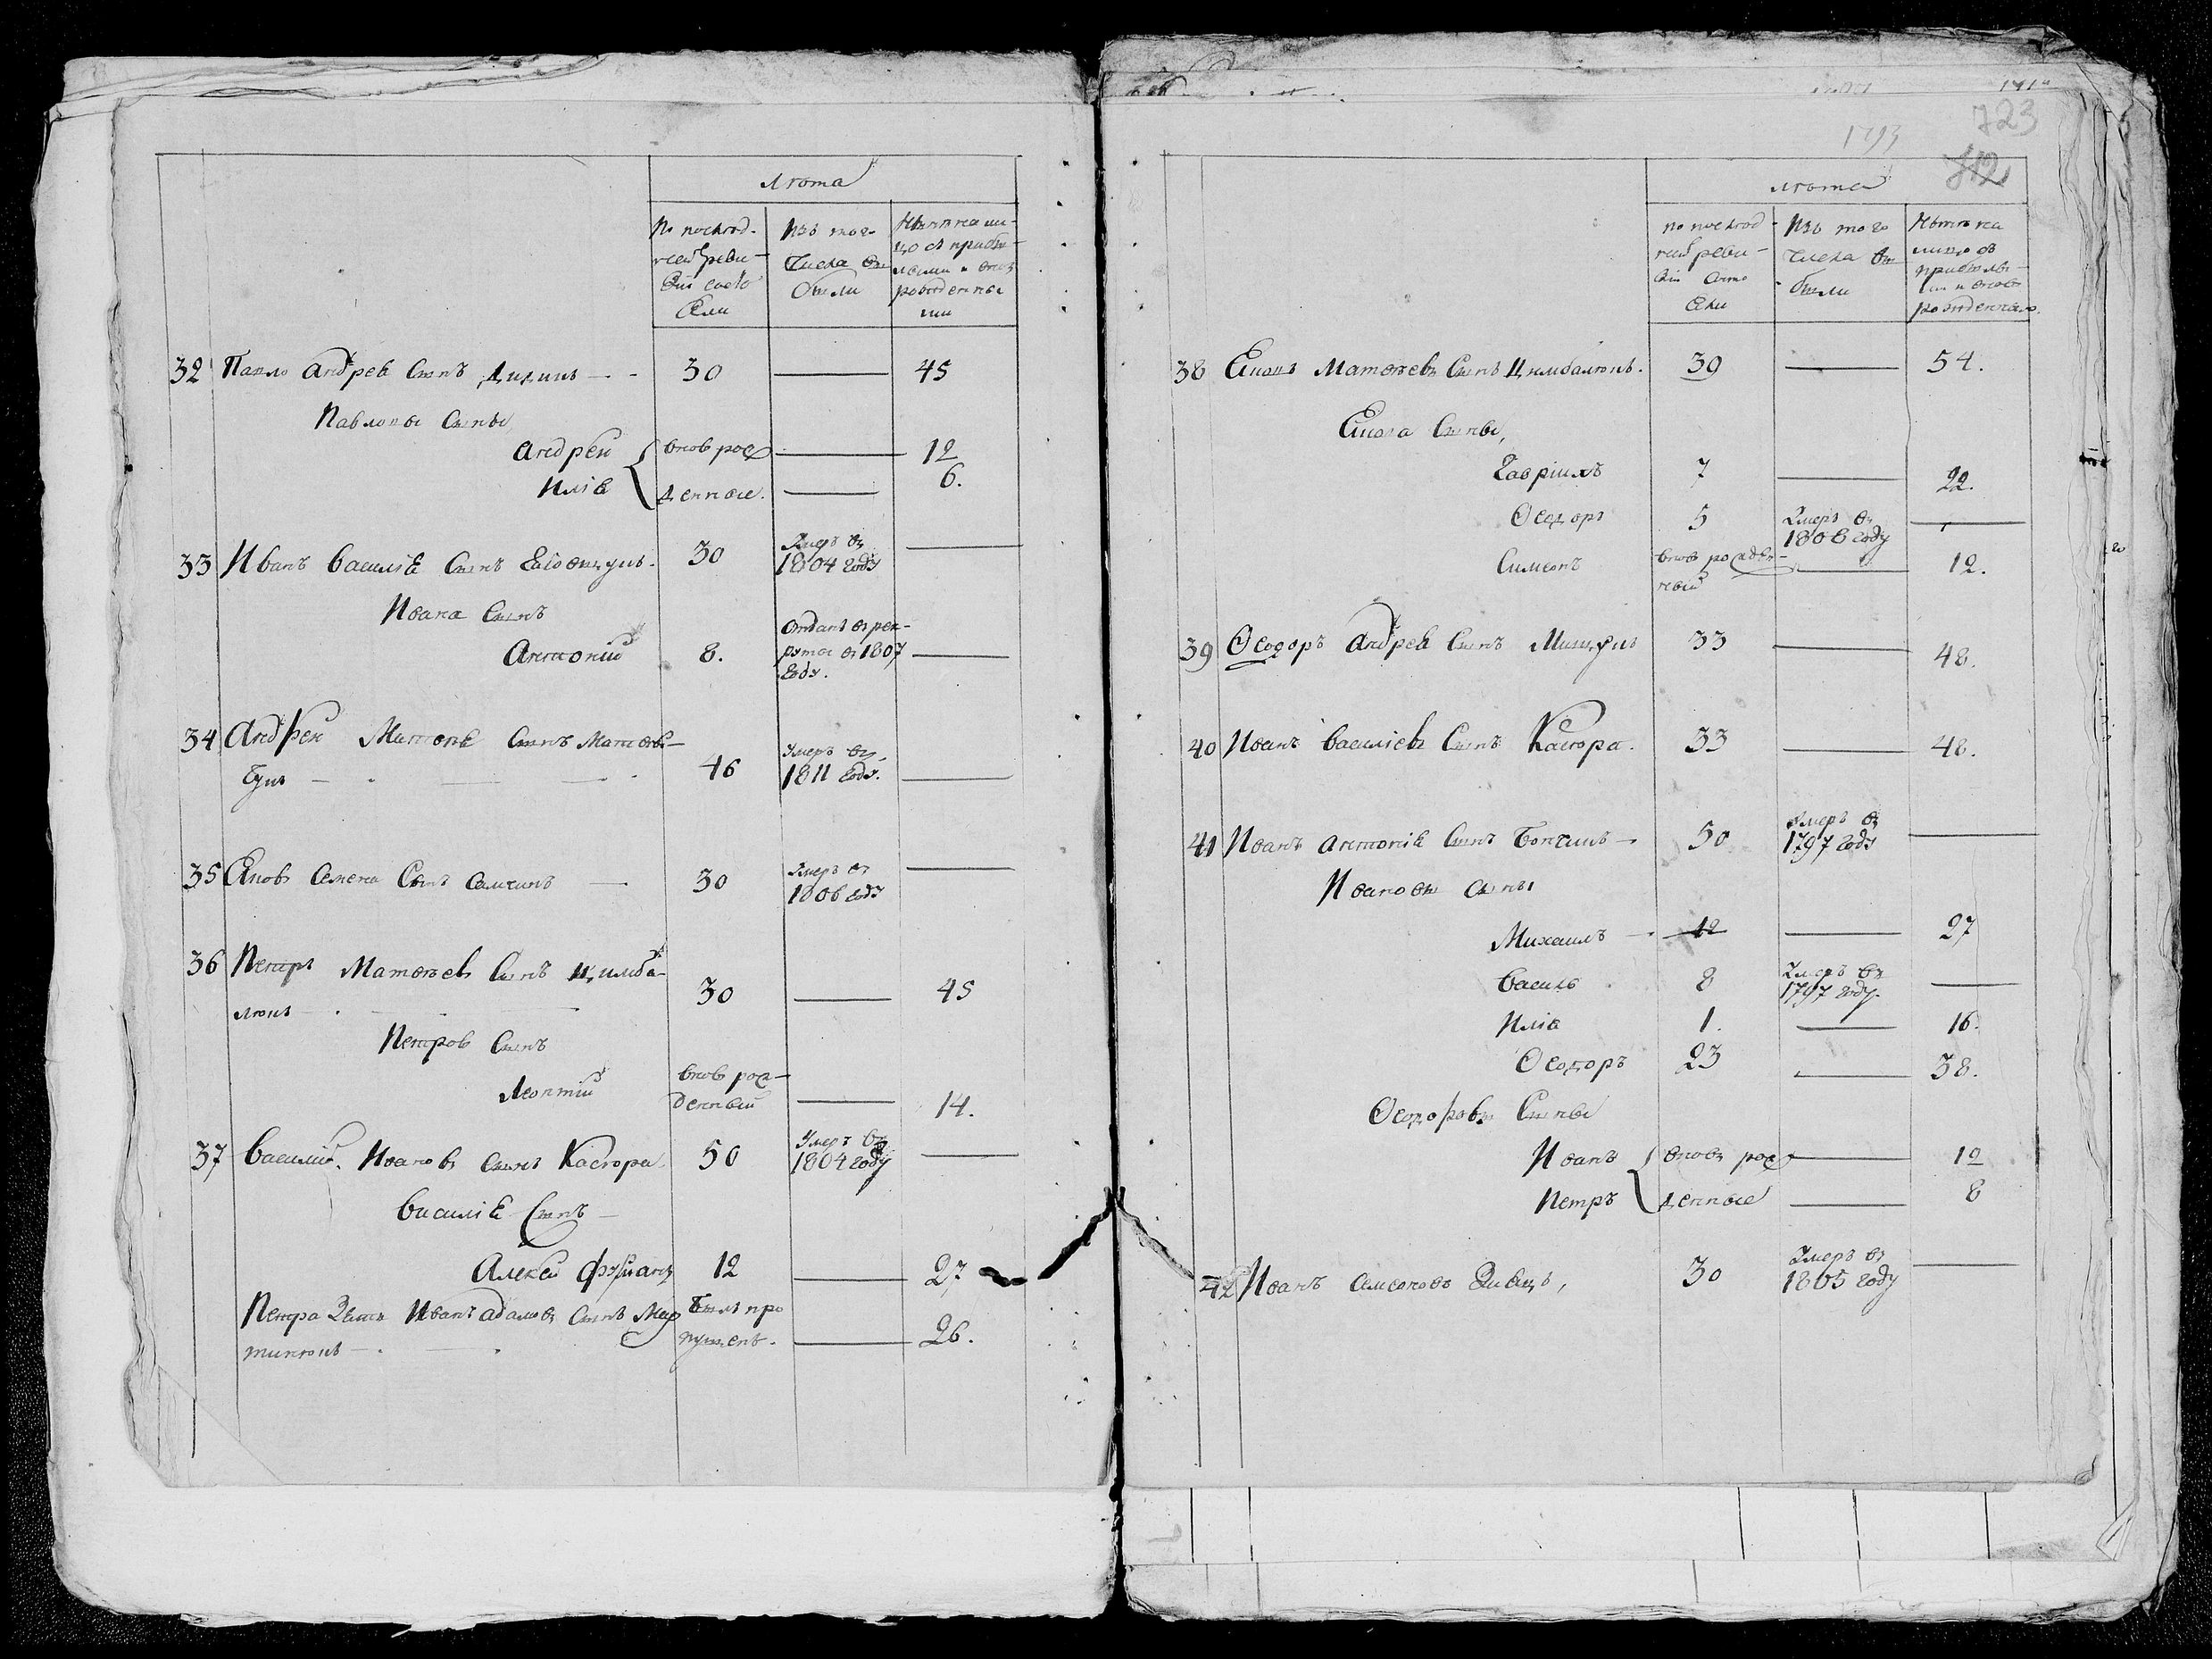 Лѣта
По послѣд-
ней реви-
зіи состо
яли
Изъ того
числа вы
были
Нынѣ на ли-
цо съ прибы-
лыми и вновь
рожденны
ми
32 Павло Андреѣ Сынъ 30 — 45
Павловы Сыны
Андрей внов рож — 12
Иліѣ денные. — 6.
33 Иванъ Василіѣ Сынъ 30 Умеръ въ 1804 году —
Ивана Сынъ
Антоній 8. Отданъ в рек-
руты въ 1807
году. —
34 Андрей Сынъ
46 Умеръ въ 1811 году. —
35 Яковъ Семена Сынъ 30 Умеръ въ 1806 году —
36 Петръ Матвѣевъ Сынъ Цимба-
люкъ — 30 — 45
Петров Сынъ
Леонтій внов рож-
денный — 14.
37 Василій Иванов Сынъ Касюра 50 Умеръ въ 1804 году —
Василіѣ Сынъ
Алексѣй 12 — 27
Петра Зять Иванъ Адамовъ Сынъ Мар
тинюкъ — Былъ про
пущенъ. — 26.
723
1793
712
Лѣта
По послѣд-
ней реви-
зіи состо
яли
Изъ того
числа вы
были
Нынѣ на
лицо съ
прибылы-
ми и вновь
рожденными.
38 Матвѣевъ Сынъ Цимбалюкъ. 39 — 54.
Сыны,
Гавріилъ 7 — 22.
Ѳеодоръ 5 Умеръ въ 1806 году —
Симеонъ внов рожден-
ный — 12.
39 Ѳеодоръ Андреѣ Сынъ 33 — 48.
40 Иванъ Василіевъ Сынъ Касюра. 33 — 48.
41 Иванъ Антоніѣ Сынъ 50 Умеръ въ 1797 году —
Ивановы Сыны
Михаилъ — 12 — 27
Василь 8 Умеръ въ 1797 году. —
Иліѣ 1. — 16.
Ѳеодоръ 23 — 38.
Ѳеодоровы Сыны
Иванъ вновъ рож — 12
Петръ денные — 8
42 Иванъ 30 Умеръ въ 1805 году —